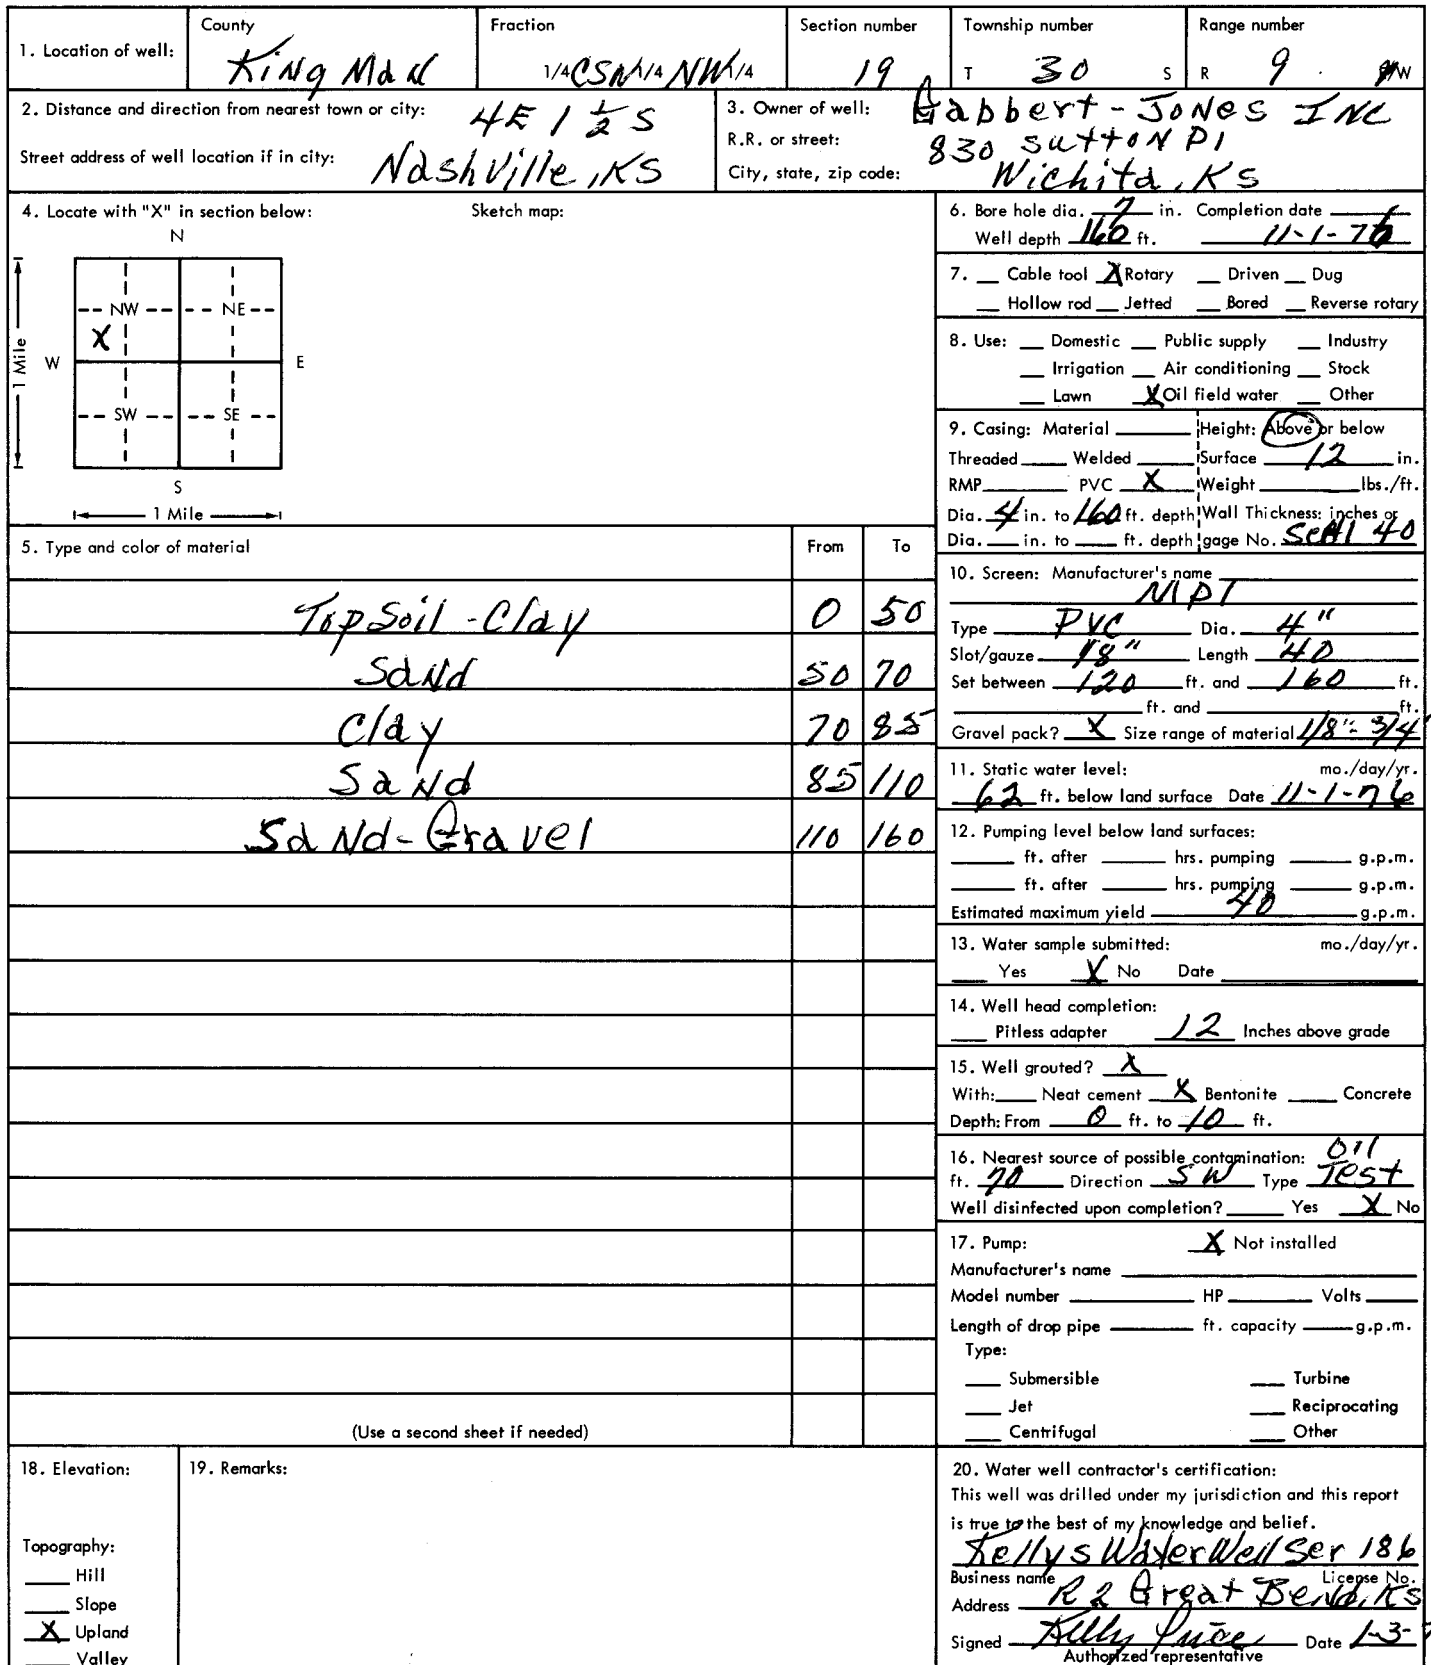 1. Location of well: County King Man Fraction 1/4 CSW 1/4 NW 1/4 Section number 19 Township number T 30 S Range number R 9 W
2. Distance and direction from nearest town or city: 4E 1 1/2 S
Street address of well location if in city: Nashville, KS
3. Owner of well: Gabbert-Jones INC
R.R. or street: 830 Sutton Pl
City, state, zip code: Wichita, KS
4. Locate with "X" in section below: Sketch map:
N
NW NE
X
W E
1 Mile
SW SE
S
1 Mile
5. Type and color of material From To
Top Soil - Clay 0 50
Sand 50 70
Clay 70 85
Sand 85 110
Sand-Gravel 110 160
(Use a second sheet if needed)
6. Bore hole dia. 7 in. Completion date
Well depth 160 ft. 11-1-76
7. Cable tool X Rotary Driven Dug
Hollow rod Jetted Bored Reverse rotary
8. Use: Domestic Public supply Industry
Irrigation Air conditioning Stock
Lawn X Oil field water Other
9. Casing: Material Height: Above or below
Threaded Welded Surface 12 in.
RMP PVC X Weight lbs./ft.
Dia. 4 in. to 160 ft. depth Wall Thickness: inches or
Dia. in. to ft. depth gage No. 40
10. Screen: Manufacturer's name
MPI
Type PVC Dia. 4"
Slot/gauze 1/8" Length 40
Set between 120 ft. and 160 ft.
ft. and ft.
Gravel pack? X Size range of material 1/8"-3/4"
11. Static water level: mo./day/yr.
62 ft. below land surface Date 11-1-76
12. Pumping level below land surfaces:
ft. after hrs. pumping g.p.m.
ft. after hrs. pumping g.p.m.
Estimated maximum yield 40 g.p.m.
13. Water sample submitted: mo./day/yr.
Yes X No Date
14. Well head completion:
Pitless adapter 12 Inches above grade
15. Well grouted? X
With: Neat cement X Bentonite Concrete
Depth: From 0 ft. to 10 ft.
16. Nearest source of possible contamination: Oil
ft. 70 Direction SW Type Test
Well disinfected upon completion? Yes X No
17. Pump: X Not installed
Manufacturer's name
Model number HP Volts
Length of drop pipe ft. capacity g.p.m.
Type:
Submersible Turbine
Jet Reciprocating
Centrifugal Other
18. Elevation:
Topography:
Hill
Slope
X Upland
Valley
19. Remarks:
20. Water well contractor's certification:
This well was drilled under my jurisdiction and this report
is true to the best of my knowledge and belief.
Kellys Water Well Ser 186
Business name License No.
Address R2 Great Bend, KS
Signed Kelly Price Date 1-3-
Authorized representative